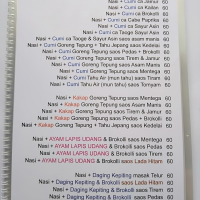 Nasi + Cumi ca Jamur 60
Nasi + Cumi ca Kailan 60
Nasi + Cumi ca Brokolli 60
Nasi + Cumi ca Cabe Paprika 60
Nasi + Cumi ca Sayur Asin 60
Nasi + Cumi ca Taoge Sayur Asin 60
Nasi + Cumi ca Taoge & Sayur Asin saos asam manis 60
Nasi + Cumi Goreng Tepung + Tahu Jepang saos Kedelai 60
Nasi + Cumi Goreng Tepung saos Pedas + Brokolli 60
Nasi + Cumi Goreng Tepung saos Tiram & Jamur 60
Nasi + Cumi Goreng Tepung saos Asam Manis 60
Nasi + Cumi Goreng Tepung saos Mentega 60
Nasi + Cumi Tahu Air (mun tahu) saos Tiram 60
Nasi + Cumi Tahu Air (mun tahu) saos Tomyam 60
Nasi + Kakap Goreng Tepung saos Mentega 60
Nasi + Kakap Goreng Tepung saos Asam Manis 60
Nasi + Kakap Goreng Tepung saos Tiram & Jamur 60
Nasi + Kakap Goreng Tepung saos Pedas + Brokolli 60
Nasi + Kakap Goreng Tepung + Tahu Jepang saos Kedelai 60
Nasi + AYAM LAPIS UDANG & Brokolli saos Mentega 60
Nasi + AYAM LAPIS UDANG & Brokolli saos Pedas 60
Nasi + AYAM LAPIS UDANG & Brokolli saos Tiram 60
Nasi + AYAM LAPIS UDANG & Brokolli saos Lada Hitam 60
Nasi + Daging Kepiting masak Telur 60
Nasi + Daging Kepiting & Brokolli saos Lada Hitam 60
Nasi + Daging Kepiting & Brokolli saos Tiram 60
Nasi + Daging Kepiting & Brokolli saos Pedas 60